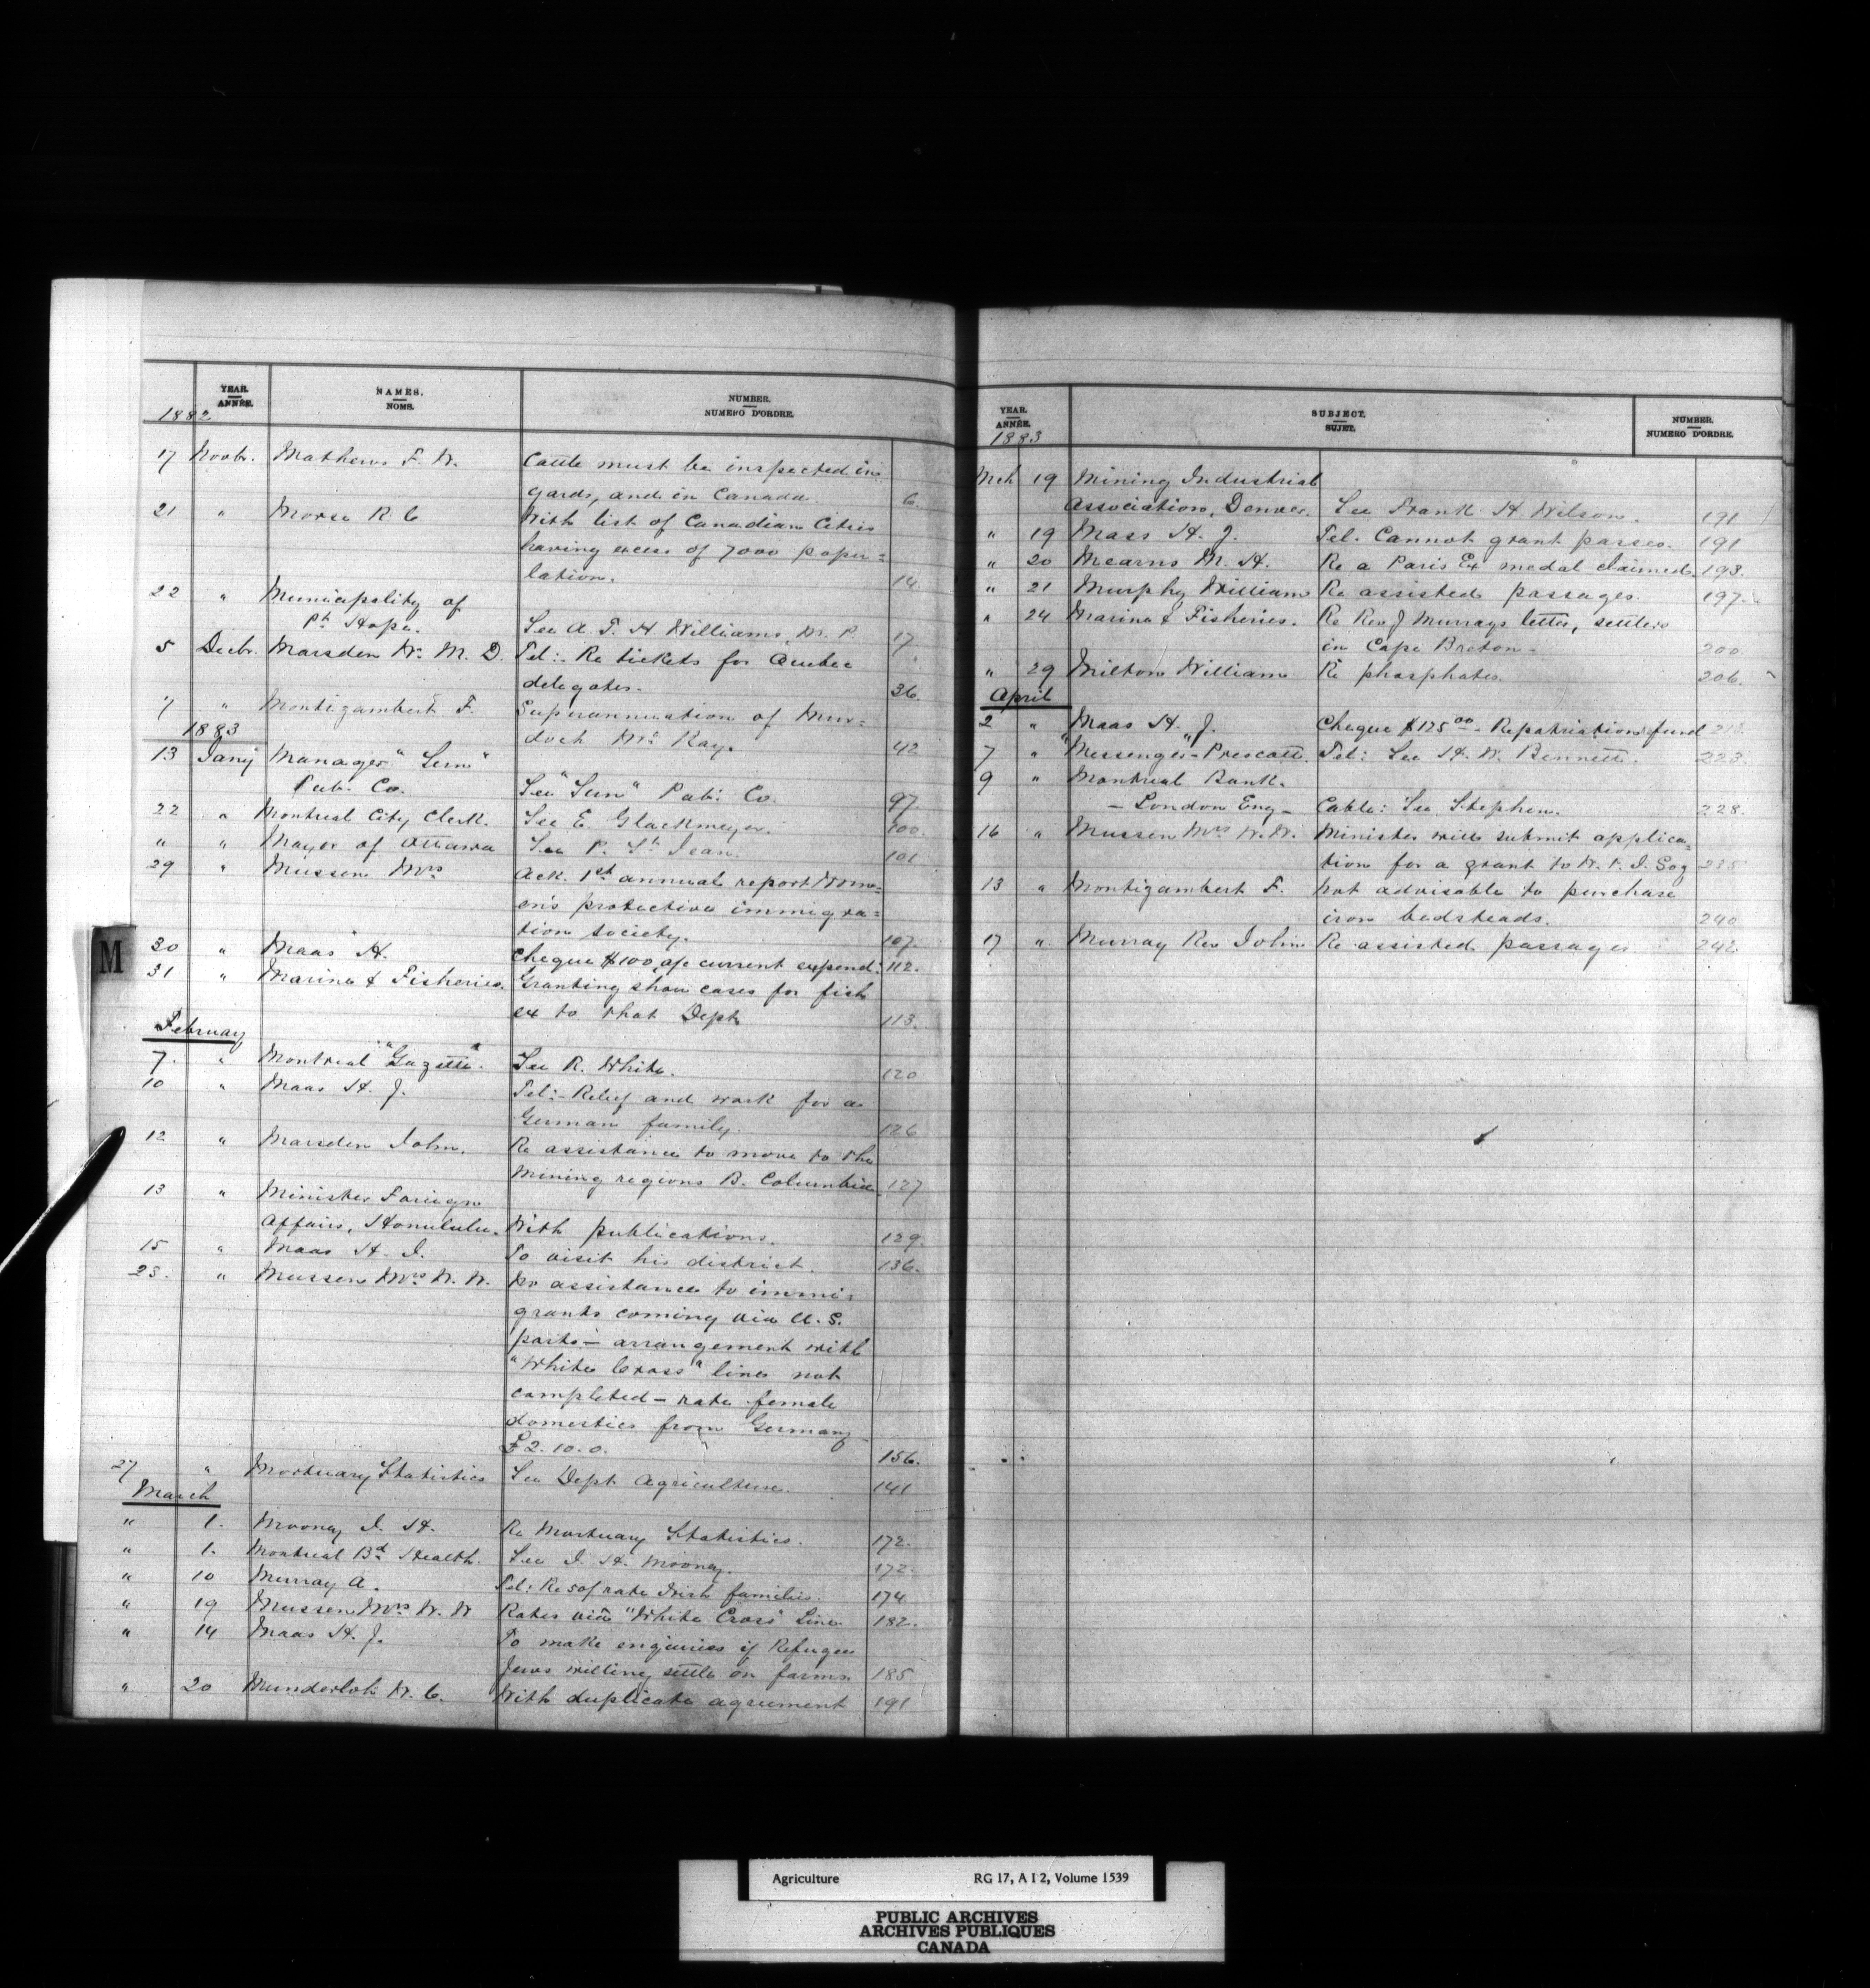 YEAR. ANNÉE. NAMES. NOMS. NUMBER. NUMERO D'ORDRE.
1882
17 Novbr. Mathews F. W. Cattle must be inspected in
gards, and in Canada. 6.
21 " Morse R. C With list of Canadian Cities
having excess of 7000 popu=
lation. 14.
22 " Municipality of
Pt Hope. See A. T. H. Williams, M. P. 17
5 Decbr. Marsden Wm M. D. Tel:- Re tickets for Quebec
delegates. 36.
7 " Montizambert F. Superannuation of Mur=
doch McKay. 42
1883
13 Jany Manager "Sun"
Pub. Co. See "Sun" Pub: Co. 97
22 " Montreal City Clerk. See E Glackmeyer. 100.
" " Mayor of Ottawa See P. St Jean. 101
29 " Mussen Mrs Ack. 1st annual report Wom=
en's protective immigra=
tion society. 107.
30 " Maas H. Cheque $100 a/c current expend: 112.
31 " Marine & Fisheries. Granting show cases for fish
ex to that Dept 113.
February
7. " Montreal "Gazette". See R. White. 120
10 " Maas H. J. Tel:- Relief and work for a
German family. 126
12 " Marsden John. Re assistance to move to the
Mining regions B. Columbia 127
13 " Minister Foreign
Affairs, Honululu. With publications. 129.
15 " Maas H. J. To visit his district. 136.
23. " Mussen Mrs W. W. No assistance to immi=
grants coming via U. S.
ports - arrangement with
"White Cross" line not
completed - rate female
domestics from Germany
£2. 10. 0. 156.
27 " Mortuary Statistics See Dept Agriculture. 141
March
" 1. Mooney J. H. Re Mortuary Statistics. 172.
" 1. Montreal Bd Health. See J. H. Mooney. 172.
" 10 Murray A. Tel: Re 50/ rate Irish families. 174
" 19 Mussen Mrs W. W Rates via "White Cross" Line 182.
" 14 Maas H. J. To make enquiries if Refugee
Jews willing settle on farms. 185
" 20 Munderloh W. C. With duplicate agreement 191
M
YEAR. ANNÉE. SUBJECT. SUJET. NUMBER. NUMERO D'ORDRE.
1883
Mch 19 Mining Industrial
Association, Denver. See Frank H. Wilson. 191
" 19 Mass H. J. Tel. Cannot grant passes. 191
" 20 Mearns M. H. Re a Paris Ex medal claimed. 193.
" 21 Murphy William Re assisted passages. 197.
" 24 Marine & Fisheries. Re Rev J Murrays letter, settlers
in Cape Breton - 200.
" 29 Milton William Re phosphates 206.
April
2 " Maas H. J. Cheque $125.00 - Repatriation fund
7 " "Messenger" - Prescott. Tel: See H. W. Bennett. 223.
9 " Montreal Bank.
- London Eng - Cable: See Stephen. 228.
16 " Mussen Mrs W. W. Minister will submit applica=
tion for a grant to W. P. I. Soc
13 " Montizambert F. Not advisable to purchase
iron bedsteads. 240
17 " Murray Rev John Re assisted passages 242.
Agriculture RG 17, A I 2, Volume 1539
PUBLIC ARCHIVES
ARCHIVES PUBLIQUES
CANADA